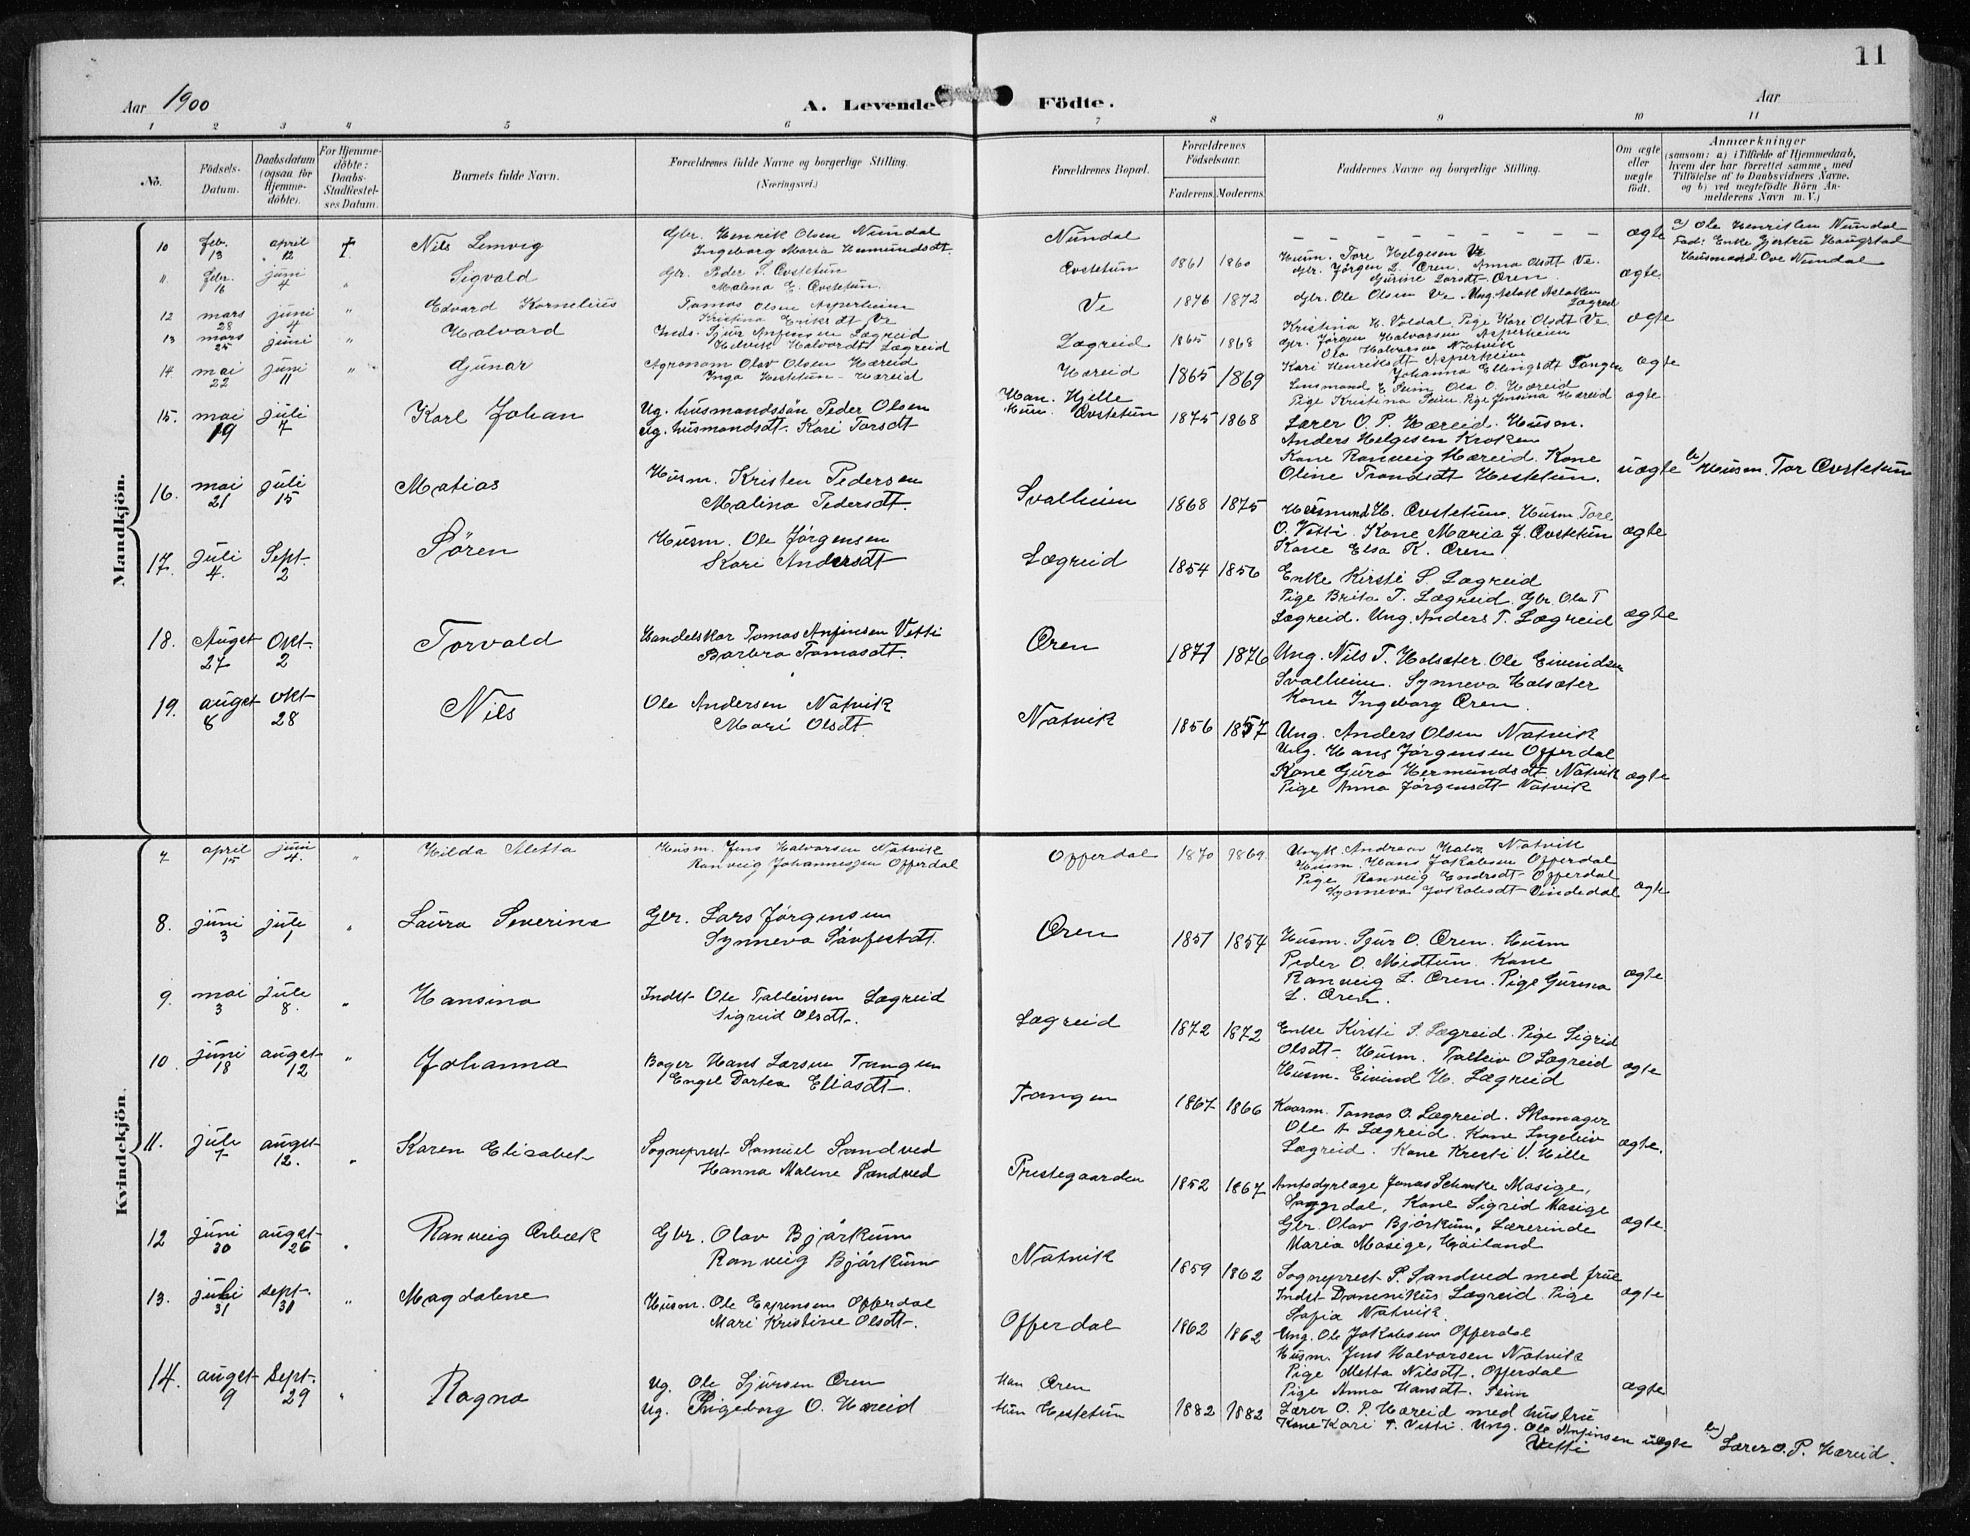 11
Aar 1900
A. Levende Födte.
Aar
1 2 3 4 5 6 7 8 9 10 11
No.
Födsels-Datum.
Daabsdatum (ogsaa for Hjemme-döbte).
For Hjemme-döbte: Daabs-Stadfæstel-ses Datum.
Barnets fulde Navn.
Forældrenes fulde Navne og borgerlige Stilling. (Næringsvei.)
Forældrenes Bopæl.
Forældrenes Födselsaar.
Faderens. Moderens.
Faddernes Navne og borgerlige Stilling.
Om ægte eller uægte födt.
Anmærkninger
(saasom: a) i Tilfælde af Hjemmedaab,
hvem der har forrettet samme, med
Tilföielse af to Daabsvidners Navne.
og b) ved uægtefödte Börn An-
melderens Navn m. V.)
Mandkjön.
10 feb. 13 april 12 † Nils Lemvig Gbr. Henrik Olsen Nundal
Ingeborg Maria Hermundsdt. Nundal – – – – – – ægte a) Ole Henriksen Nundal
Fad: Enke Gjertru Haugstad
Husmand Ove Nundal
" febr. 16 juni 4 " Sigvald Gbr. Peder S. Ovstetun
Malena E. Ovstetun. Ovstetun 1861 1860 Husm. Tore Helgesen Ve
Gbr. Jørgen L. Øren. Anna Olsdt Ve.
Gurine Larsdt Øren. ægte
12 mars 28 juni 4 " Edvard Kornelius Tomas Olsen Asperheim
Kristina Eriksdt Ve Ve 1876 1872 Gbr. Ole Olsen Ve Ung. Aslak Aslaksen Lægreid
Kristina H. Voldal. Pige Kari Olsdt Ve ægte
13 mars 25 juni 4 " Halvard Inds. Sjur Anfinsen Lægreid
Helvik Halvardsdt Lægreid Lægreid 1865 1868 Gbr. Jørgen Halvorsen Asperheim
Ola Halvorsen Natvik
Kari Henriksdt Asperheim
Johanna Ellingsdt Tangen ægte
14 mai 22 juni 11 " Gunar Agronom Olav Olsen Hæreid
Inga Hestetun-Hæreid Hæreid 1865 1869 Lensmand E Seim Ola O. Hæreid
Pige Kristina Seim. Pige Jensina Hæreid ægte
15. mai 19 juli 7 Karl Johan Ug. husmandssøn Peder Olsen
Ug. husmandsdt. Kari Torsdt Han. Hjelle
Hun. Ovstetun 1875 1868 Lærer O. P. Hæreid. Husm.
Anders Helgesen Kroken
Kone Ranveig Hæreid. Kone
Oline Trondsdt Hestetun. uægte b) Husm. Tor Ovstetun
16. mai 21 juli 15 Matias Husm. Kristen Pedersen
Malina Pedersdt. Svalheim 1868 1875 Hermund H. Ovstetun. Husm. Tore
O. Vetti. Kone Maria J. Ovstetun
Kone Elsa K. Øren. ægte
17. Juli 4. Sept. 2 Søren Husm. Ole Jørgensen
Kari Andersdt Lægreid 1854 1856 Enke Kirsti S. Lægreid
Pige Brita T. Lægreid. Gbr. Ola T
Lægreid. Ung. Anders T. Lægreid ægte
18. Auget 27 Okt. 2 Torvald Handelskar Tomas Anfinsen Vetti
Barbra Tomasdt. Øren 1871 1876 Ung. Nils T. Holsæter. Ole Eivindsen
Svalheim. Synneva Holsæter
Kone Ingeborg Øren. ægte
19. auget 8 okt 28 Nils Ole Andersen Natvik
Mari Olsdt. Natvik 1856 1857 Ung. Anders Olsen Natvik
Ung. Hans Jørgensen Offerdal
Kone Guro Hermundsdt. Natvik
Pige Anna Jørgensdt Natvik ægte
Kvindekjön.
7 april 15 juni 4. " Hilda Aletta Husm. Jens Halvorsen Natvik
Ranveig Johannesen Offerdal Offerdal 1870 1869. Ungk. Andreas Halv. Natvik
Husm. Hans Jakobsen Offerdal
Pige Ranveig Endresdt Offerdal
Synneva Jakobsdt Vindedal ægte
8. juni 3 jule 1 " Laura Severina Gbr. Lars Jørgensen
Synneva Sønfestdt. Øren 1851 1854 Husm. Sjur O. Øren. Husm
Peder O. Midtun. Kone
Ranveig L. Øren. Pige Gurina
L. Øren. ægte
9. mai 3 jule 8. " Hansina Indst. Ole Talleivsen Lægreid
Sigreid Olsdt. Lægreid 1872 1872 Enke Kirsti S. Lægreid. Pige Sigrid
Olsdt. Husm. Talleiv O Lægreid
Husm. Eivind H. Lægreid ægte
10. juni 18 auget 12 " Johanna Bager Hans Larsen Tangen
Engel Dortea Eliasdt. Tangen 1867 1866 Kaarm. Tomas O. Lægreid. Skomager
Ole A Lægreid. Kone Ingeleiv
Lægreid. Kone Kresti V. Hille ægte.
11. jule 7 auget 12. " Karen Elisabet Sogneprest Samuel Sandved
Hanna Malene Sandved Prestegaarden 1852 1867 Amtsdyrlæge Jonas Schanke Masige,
Sogndal, Kone Sigrid Masige
Gbr. Olav Bjørkum, Lærerinde
Maria Masige, Høiland ægte
12 juni 30 auget 26 " Ranveig Arbæk Gbr. Olav Bjørkum
Ranveig Bjørkum Natvik 1859 1862 Sogneprest S. Sandved med frue
Indst Domenikus Lægreid. Pige
Sofia Natvik. ægte
13. juli 31 sept. 30 " Magdalene Husm. Ole Espensen Offerdal
Mari Kristine Olsdt. Offerdal 1862 1862 Ung. Ole Jakobsen Offerdal
Husm. Jens Halvorsen Natvik
Pige Metta Nilsdt. Offerdal
Pige Anna Hansdt. Seim ægte
14. auget 9 Sept. 29 " Ragna Ug. Ole Sjursen Øren
Ug. Ingeborg O. Hæreid Han Øren
Hun Hestetun 1882 1882 Lærer O. P. Hæreid med hustru
Kone Kari T. Vetti. Ung. Ole Anfinsen
Vetti uægte b) Lærer O. P. Hæreid.